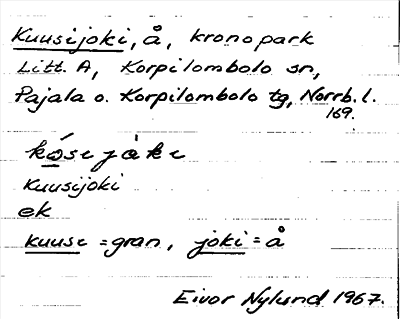 Kuusijoki, å, kronopark
Litt. A, Korpilombolo sn,
Pajala o. Korpilombolo tg, Norrb. l.
169.
kusijåki
Kuusijoki
ek
kuusi = gran, joki = å
Eivor Nylund 1967.